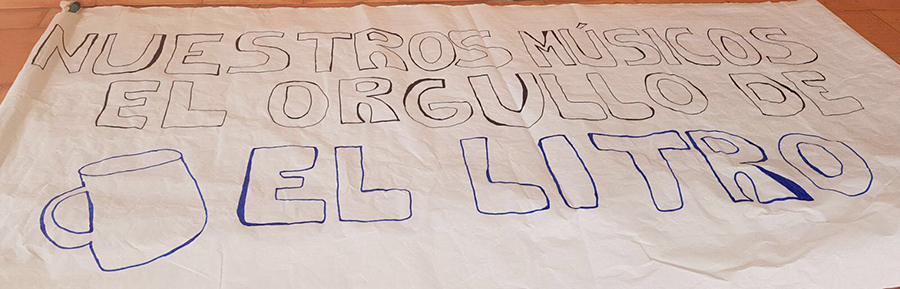 NUESTROS MÚSICOS
EL ORGULLO DE
EL LITRO